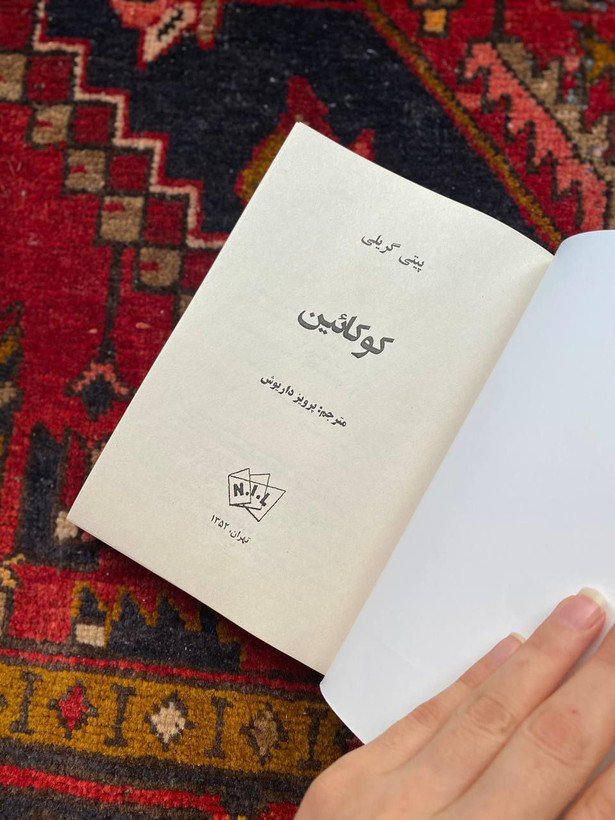 پیتی گریلی
کوکائین
مترجم: پرویز داریوش
N.I.L
تهران، ۱۳۵۲